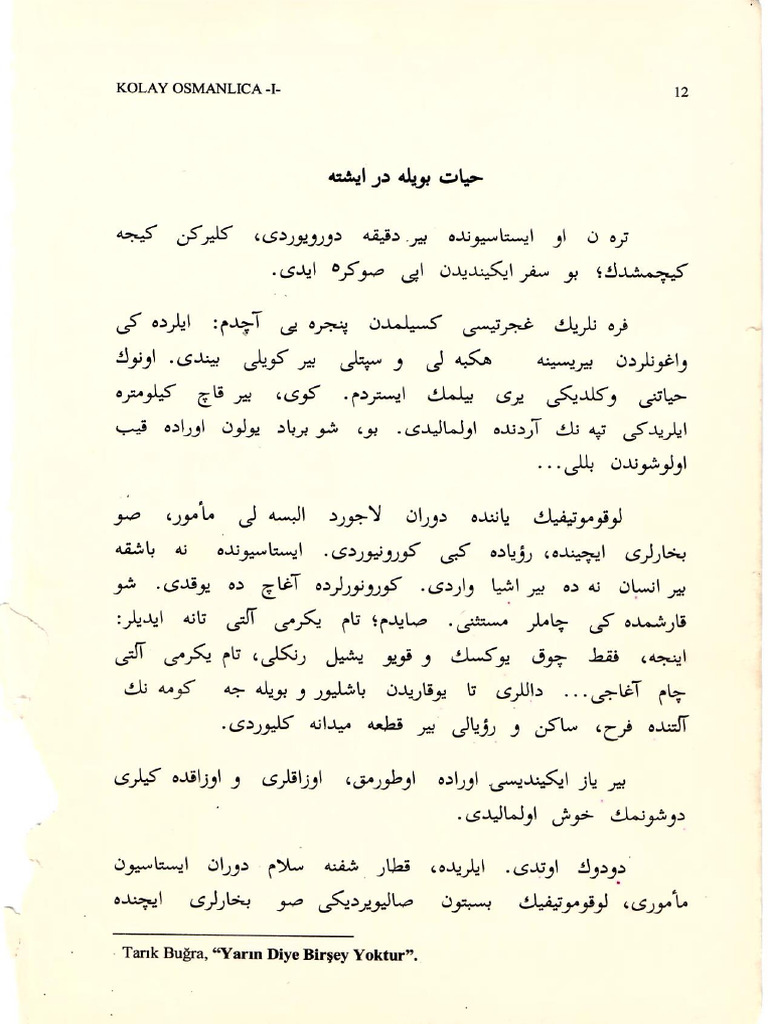 KOLAY OSMANLICA -I-
12
حیات بویله در ایشته
تره ن او ایستاسیونده بیر دقیقه دورویوردی، کلیرکن کیجه
کیچمشدك؛ بو سفر ایکیندیدن اپی صوکره ایدی.
فره نلریك غجرتیسی کسیلمدن پنجره یی آچدم: ایلرده کی
واغونلردن بیریسینه هکبه لی و سپتلی بیر کویلی بیندی. اونوك
حیاتنی وکلدیکی یری بیلمك ایستردم. کوی، بیر قاچ کیلومتره
ایلریدکی تپه نك آردنده اولمالیدی. بو، شو برباد یولون اوراده قیب
اولوشوندن بللی...
لوقوموتیفیك یاننده دوران لاجورد البسه لی مأمور، صو
بخارلری ایچینده، رؤیاده کبی کورونیوردی. ایستاسیونده نه باشقه
بیر انسان نه ده بیر اشیا واردی. کورونورلرده آغاچ ده یوقدی. شو
قارشمده کی چاملر مستثنی. صایدم؛ تام یکرمی آلتی تانه ایدیلر:
اینجه، فقط چوق یوکسك و قویو یشیل رنکلی، تام یکرمی آلتی
چام آغاجی... داللری تا یوقاریدن باشلیور و بویله جه کومه نك
آلتنده فرح، ساکن و رؤیالی بیر قطعه میدانه کلیوردی.
بیر یاز ایکیندیسی اوراده اوطورمق، اوزاقلری و اوزاقده کیلری
دوشونمك خوش اولمالیدی.
دودوك اوتدی. ایلریده، قطار شفنه سلام دوران ایستاسیون
مأموری، لوقوموتیفیك بسبتون صالیویردیکی صو بخارلری ایچنده
Tarık Buğra, “Yarın Diye Birşey Yoktur”.